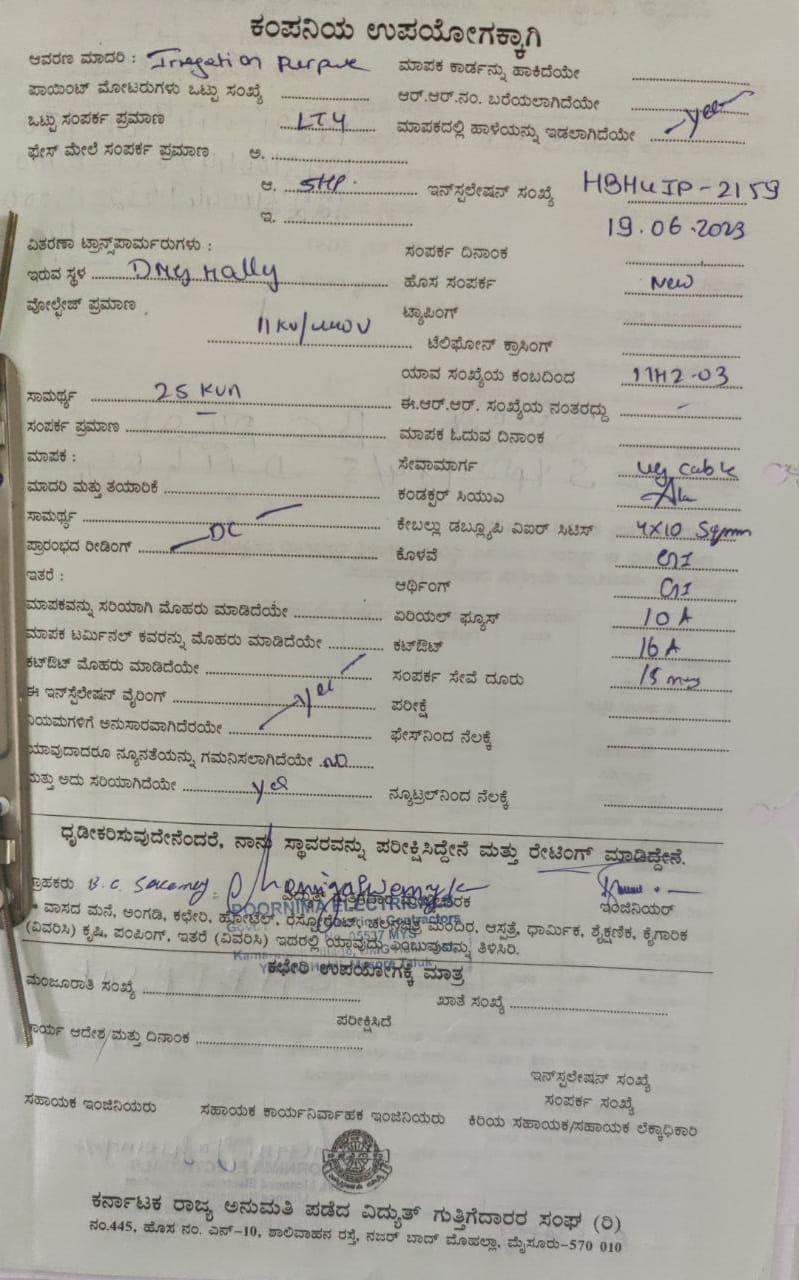 ಕಂಪನಿಯ ಉಪಯೋಗಕ್ಕಾಗಿ
ಆವರಣ ಮಾದರಿ : Irregation purpose
ಮಾಪಕ ಕಾರ್ಡನ್ನು ಹಾಕಿದೆಯೇ
ಪಾಯಿಂಟ್ ಮೋಟರುಗಳು ಒಟ್ಟು ಸಂಖ್ಯೆ
ಆರ್.ಆರ್.ನಂ. ಬರೆಯಲಾಗಿದೆಯೇ
ಒಟ್ಟು ಸಂಪರ್ಕ ಪ್ರಮಾಣ LT4
ಮಾಪಕದಲ್ಲಿ ಹಾಳೆಯನ್ನು ಇಡಲಾಗಿದೆಯೇ yes
ಫೇಸ್ ಮೇಲೆ ಸಂಪರ್ಕ ಪ್ರಮಾಣ ಅ.
ಆ. 5HP.
ಇನ್‌ಸ್ಪಲೇಷನ್ ಸಂಖ್ಯೆ HBH4IP-2159
ಇ.
19.06.2023
ವಿತರಣಾ ಟ್ರಾನ್ಸ್‌ಪಾರ್ಮರುಗಳು :
ಸಂಪರ್ಕ ದಿನಾಂಕ
ಇರುವ ಸ್ಥಳ Hally
ಹೊಸ ಸಂಪರ್ಕ New
ವೋಲ್ಟೇಜ್ ಪ್ರಮಾಣ 11KV/440V
ಟ್ಯಾಪಿಂಗ್
ಟೆಲಿಫೋನ್ ಕ್ರಾಸಿಂಗ್
ಯಾವ ಸಂಖ್ಯೆಯ ಕಂಬದಿಂದ 11H2-03
ಸಾಮರ್ಥ್ಯ 25 KVA
ಈ.ಆರ್.ಆರ್. ಸಂಖ್ಯೆಯ ನಂತರದ್ದು -
ಸಂಪರ್ಕ ಪ್ರಮಾಣ
ಮಾಪಕ ಓದುವ ದಿನಾಂಕ
ಮಾಪಕ :
ಸೇವಾಮಾರ್ಗ ug cable
ಮಾದರಿ ಮತ್ತು ತಯಾರಿಕೆ
ಕಂಡಕ್ಟರ್ ಸಿಯುಎ Alu
ಸಾಮರ್ಥ್ಯ
ಕೇಬಲ್ಲು ಡಬ್ಲ್ಯೂಪಿ ವಿಐರ್ ಸಿಟಿಸ್ 4X10 Sqmm
ಪ್ರಾರಂಭದ ರೀಡಿಂಗ್ DC
ಕೊಳವೆ GI
ಇತರೆ :
ಆರ್ಥಿಂಗ್ GI
ಮಾಪಕವನ್ನು ಸರಿಯಾಗಿ ಮೊಹರು ಮಾಡಿದೆಯೇ
ಏರಿಯಲ್ ಫ್ಯೂಸ್ 10 A
ಮಾಪಕ ಟರ್ಮಿನಲ್ ಕವರನ್ನು ಮೊಹರು ಮಾಡಿದೆಯೇ
ಕಟ್‌ಔಟ್ 16 A
ಕಟ್‌ಔಟ್ ಮೊಹರು ಮಾಡಿದೆಯೇ
ಸಂಪರ್ಕ ಸೇವೆ ದೂರು 15
ಈ ಇನ್‌ಸ್ಪಲೇಷನ್ ವೈರಿಂಗ್ yes
ಪರೀಕ್ಷೆ
ನಿಯಮಗಳಿಗೆ ಅನುಸಾರವಾಗಿದೆರಯೇ
ಫೇಸ್‌ನಿಂದ ನೆಲಕ್ಕೆ
ಯಾವುದಾದರೂ ನ್ಯೂನತೆಯನ್ನು ಗಮನಿಸಲಾಗಿದೆಯೇ NO
ಮತ್ತು ಅದು ಸರಿಯಾಗಿದೆಯೇ yes
ನ್ಯೂಟ್ರಲ್‌ನಿಂದ ನೆಲಕ್ಕೆ
ಧೃಡೀಕರಿಸುವುದೇನೆಂದರೆ, ನಾನು ಸ್ಥಾವರವನ್ನು ಪರೀಕ್ಷಿಸಿದ್ದೇನೆ ಮತ್ತು ರೇಟಿಂಗ್ ಮಾಡಿದ್ದೇನೆ.
ಗ್ರಾಹಕರು B.C.
ಇಂಜಿನಿಯರ್
POORNIMA ELECTRICALS
* ವಾಸದ ಮನೆ, ಅಂಗಡಿ, ಕಛೇರಿ, ಹೋಟೆಲ್, ರೆಸ್ಟೋರೆಂಟ್, ಚಲನಚಿತ್ರ ಮಂದಿರ, ಆಸ್ಪತ್ರೆ, ಧಾರ್ಮಿಕ, ಶೈಕ್ಷಣಿಕ, ಕೈಗಾರಿಕ
(ವಿವರಿಸಿ) ಕೃಷಿ, ಪಂಪಿಂಗ್, ಇತರೆ (ವಿವರಿಸಿ) ಇದರಲ್ಲಿ ಯಾವುದು ಎಂಬುವುದನ್ನು ತಿಳಿಸಿರಿ.
ಕಛೇರಿ ಉಪಯೋಗಕ್ಕೆ ಮಾತ್ರ
ಮಂಜೂರಾತಿ ಸಂಖ್ಯೆ
ಖಾತೆ ಸಂಖ್ಯೆ
ಪರೀಕ್ಷಿಸಿದೆ
ಕಾರ್ಯ ಆದೇಶ/ಮತ್ತು ದಿನಾಂಕ
ಇನ್‌ಸ್ಪಲೇಷನ್ ಸಂಖ್ಯೆ
ಸಂಪರ್ಕ ಸಂಖ್ಯೆ
ಸಹಾಯಕ ಇಂಜಿನಿಯರು ಸಹಾಯಕ ಕಾರ್ಯನಿರ್ವಾಹಕ ಇಂಜಿನಿಯರು ಕಿರಿಯ ಸಹಾಯಕ/ಸಹಾಯಕ ಲೆಕ್ಕಾಧಿಕಾರಿ
ಕರ್ನಾಟಕ ರಾಜ್ಯ ಅನುಮತಿ ಪಡೆದ ವಿದ್ಯುತ್ ಗುತ್ತಿಗೆದಾರರ ಸಂಘ (ರಿ)
ನಂ.445, ಹೊಸ ನಂ. ಎನ್-10, ಶಾಲಿವಾಹನ ರಸ್ತೆ, ನಜರ್ ಬಾದ್ ಮೊಹಲ್ಲಾ, ಮೈಸೂರು-570 010